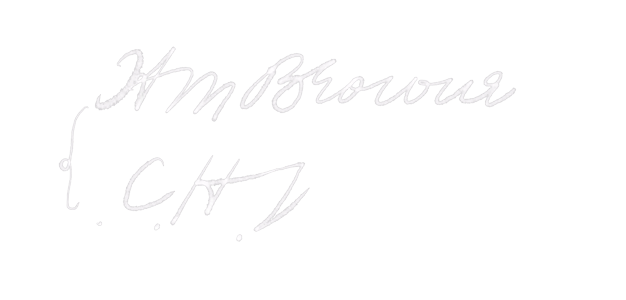 HM Browne
C. H. J.